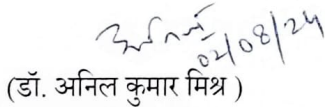 02/08/24
(डॉ. अनिल कुमार मिश्र )